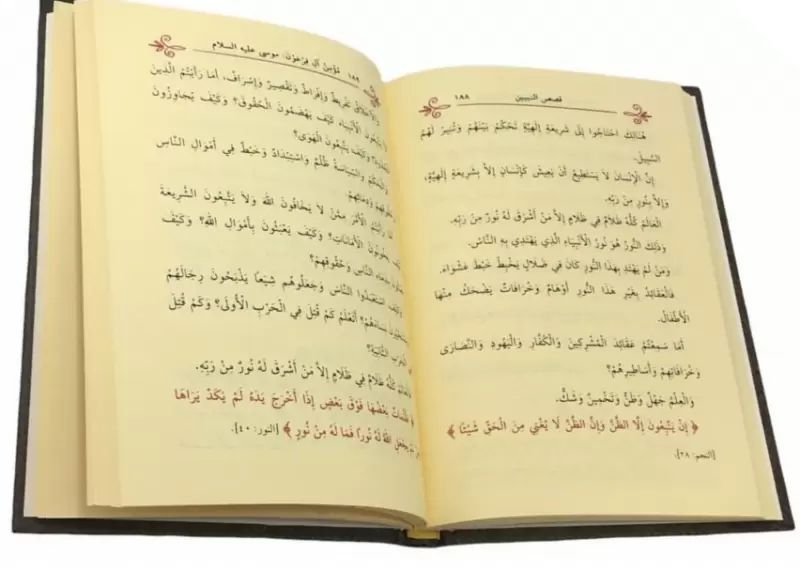 قصص النبيين ١٨٨
هُنَالِكَ احْتَاجُوا إِلَى شَرِيعَةٍ إِلَهِيَّةٍ تَحْكُمُ بَيْنَهُمْ وَتُنِيرُ لَهُمُ
السَّبِيلَ.
إِنَّ الْإِنْسَانَ لاَ يَسْتَطِيعُ أَنْ يَعِيشَ كَإِنْسَانٍ إِلاَّ بِشَرِيعَةٍ إِلَهِيَّةٍ،
وَإِلاَّ بِنُورٍ مِنْ رَبِّهِ.
الْعَالَمُ كُلُّهُ ظَلاَمٌ فِي ظَلاَمٍ إِلاَّ مَنْ أَشْرَقَ لَهُ نُورٌ مِنْ رَبِّهِ.
وَذَلِكَ النُّورُ هُوَ نُورُ الْأَنْبِيَاءِ الَّذِي يَهْتَدِي بِهِ النَّاسُ.
وَمَنْ لَمْ يَهْتَدِ بِهَذَا النُّورِ كَانَ فِي ضَلاَلٍ يَخْبِطُ خَبْطَ عَشْوَاءَ.
فَالْعَقَائِدُ بِغَيْرِ هَذَا النُّورِ أَوْهَامٌ وَخُرَافَاتٌ يَضْحَكُ مِنْهَا
الْأَطْفَالُ.
أَمَا سَمِعْتُمْ عَقَائِدَ الْمُشْرِكِينَ وَالْكُفَّارِ وَالْيَهُودِ وَالنَّصَارَى
وَخُرَافَاتِهِمْ وَأَسَاطِيرَهُمْ؟
وَالْعِلْمُ جَهْلٌ وَظَنٌّ وَتَخْمِينٌ وَشَكٌّ.
﴿ إِنْ يَتَّبِعُونَ إِلَّا الظَّنَّ وَإِنَّ الظَّنَّ لَا يُغْنِي مِنَ الْحَقِّ شَيْئًا ﴾
[النجم: ٢٨].
مُؤْمِنُ آلِ فِرْعَوْنَ: موسى عليه السلام ١٨٩
تَفْرِيطٌ وَإِفْرَاطٌ وَتَقْصِيرٌ وَإِسْرَافٌ، أَمَا رَأَيْتُمُ الَّذِينَ
يَتَّبِعُونَ الْأَنْبِيَاءَ كَيْفَ يَهْضِمُونَ الْحُقُوقَ؟ وَكَيْفَ يُجَاوِزُونَ
وَكَيْفَ يَتَّبِعُونَ الْهَوَى؟
وَالْحُكْمُ وَالسِّيَاسَةُ ظُلْمٌ وَاسْتِبْدَادٌ وَخَبْطٌ فِي أَمْوَالِ النَّاسِ
وَدِمَائِهِمْ.
رَأَيْتُمُ الْأَمْرَ مِمَّنْ لاَ يَخَافُونَ اللهَ وَلاَ يَتَّبِعُونَ الشَّرِيعَةَ
يَخُونُونَ الْأَمَانَاتِ؟ وَكَيْفَ يَعْبَثُونَ بِأَمْوَالِ اللهِ؟ وَكَيْفَ
النَّاسِ وَحُقُوقِهِمْ؟
اسْتَعْبَدُوا النَّاسَ وَجَعَلُوهُمْ شِيَعًا يَذْبَحُونَ رِجَالَهُمْ
نِسَاءَهُمْ؟ أَتَعْلَمُ كَمْ قُتِلَ فِي الْحَرْبِ الْأُولَى؟ وَكَمْ قُتِلَ
الْحَرْبِ الثَّانِيَةِ؟
كُلُّهُ ظَلاَمٌ فِي ظَلاَمٍ إِلاَّ مَنْ أَشْرَقَ لَهُ نُورٌ مِنْ رَبِّهِ.
ظُلُمَاتٌ بَعْضُهَا فَوْقَ بَعْضٍ إِذَا أَخْرَجَ يَدَهُ لَمْ يَكَدْ يَرَاهَا
يَجْعَلِ اللَّهُ لَهُ نُورًا فَمَا لَهُ مِنْ نُورٍ ﴾ [النور: ٤٠].